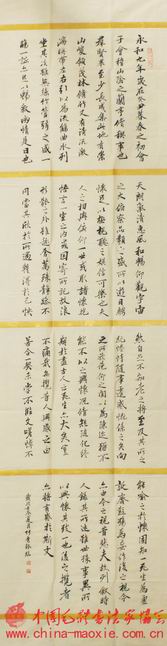 永和九年歲在癸丑暮春之初會
于會稽山陰之蘭亭修禊事也
群賢畢至少長咸集此地有崇
山峻領茂林脩竹又有清流激
湍暎帶左右引以為流觴曲水列
坐其次雖無絲竹管弦之盛一
觴一詠亦足以暢敘幽情是日也
天朗氣清惠風和暢仰觀宇宙
之大俯察品類之盛所以遊目騁
懷足以極視聽之娛信可樂也夫
人之相與俯仰一世或取諸懷抱
悟言一室之內或因寄所託放浪
形骸之外雖趣舍萬殊靜躁不
同當其欣於所遇蹔得於己快
然自足不知老之將至及其所之
既惓情隨事遷感慨係之矣向
之所欣俛仰之間以為陳迹猶不
能不以之興懷況脩短隨化終
期於盡古人云死生亦大矣豈
不痛哉每攬昔人興感之由
若合一契未嘗不臨文嗟悼不
能喻之於懷固知一死生為虛
誕齊彭殤為妄作後之視今
亦由今之視昔悲夫故列敘時
人錄其所述雖世殊事異所
以興懷其致一也後之攬者
亦將有感於斯文
中国毛体书法家协会
www.china-maoxie.com.cn